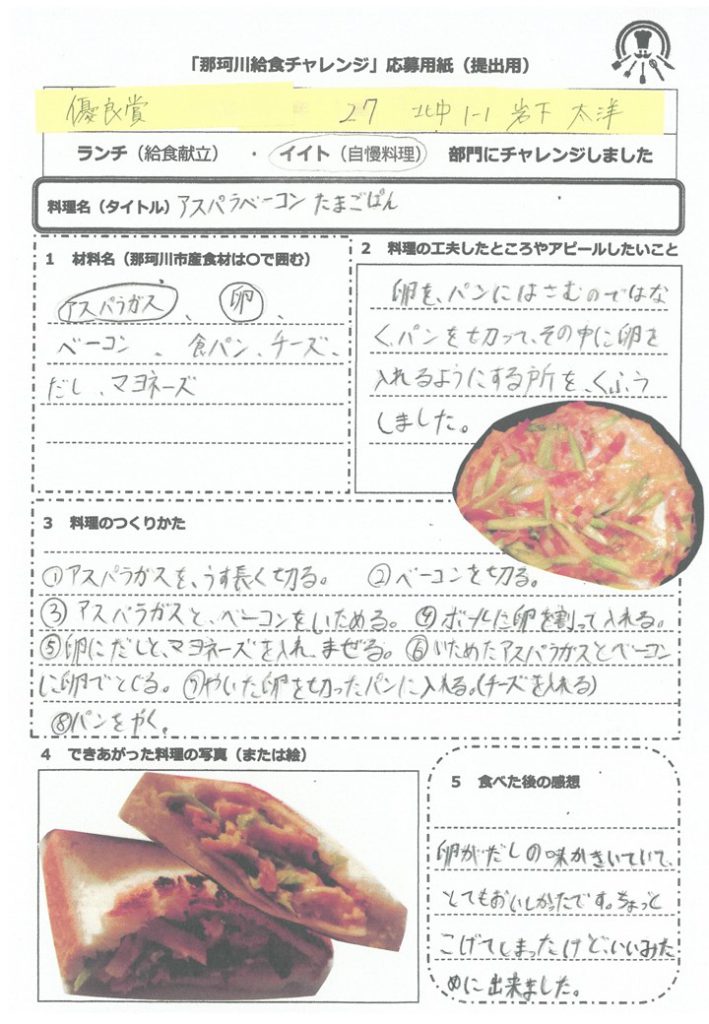 「那珂川給食チャレンジ」応募用紙（提出用）
優良賞 27 北中 1-1 岩下 太洋
ランチ（給食献立） ・ イイト（自慢料理） 部門にチャレンジしました
料理名（タイトル）アスパラベーコン たまごぱん
1 材料名（那珂川市産食材は〇で囲む）
アスパラガス、卵、
ベーコン、食パン、チーズ、
だし、マヨネーズ
2 料理の工夫したところやアピールしたいこと
卵を、パンにはさむのではな
く、パンを切って、その中に卵を
入れるようにする所を、くふう
しました。
3 料理のつくりかた
①アスパラガスを、うす長く切る。 ②ベーコンを切る。
③アスパラガスと、ベーコンをいためる。 ④ボールに卵を割って入れる。
⑤卵にだしと、マヨネーズを入れ、まぜる。 ⑥いためたアスパラガスとベーコン
に卵でとじる。 ⑦やいた卵を切ったパンに入れる。(チーズを入れる)
⑧パンをやく。
4 できあがった料理の写真（または絵）
5 食べた後の感想
卵がだしの味がきいていて、
とてもおいしかったです。ちょっと
こげてしまったけど、いいみた
めに出来ました。